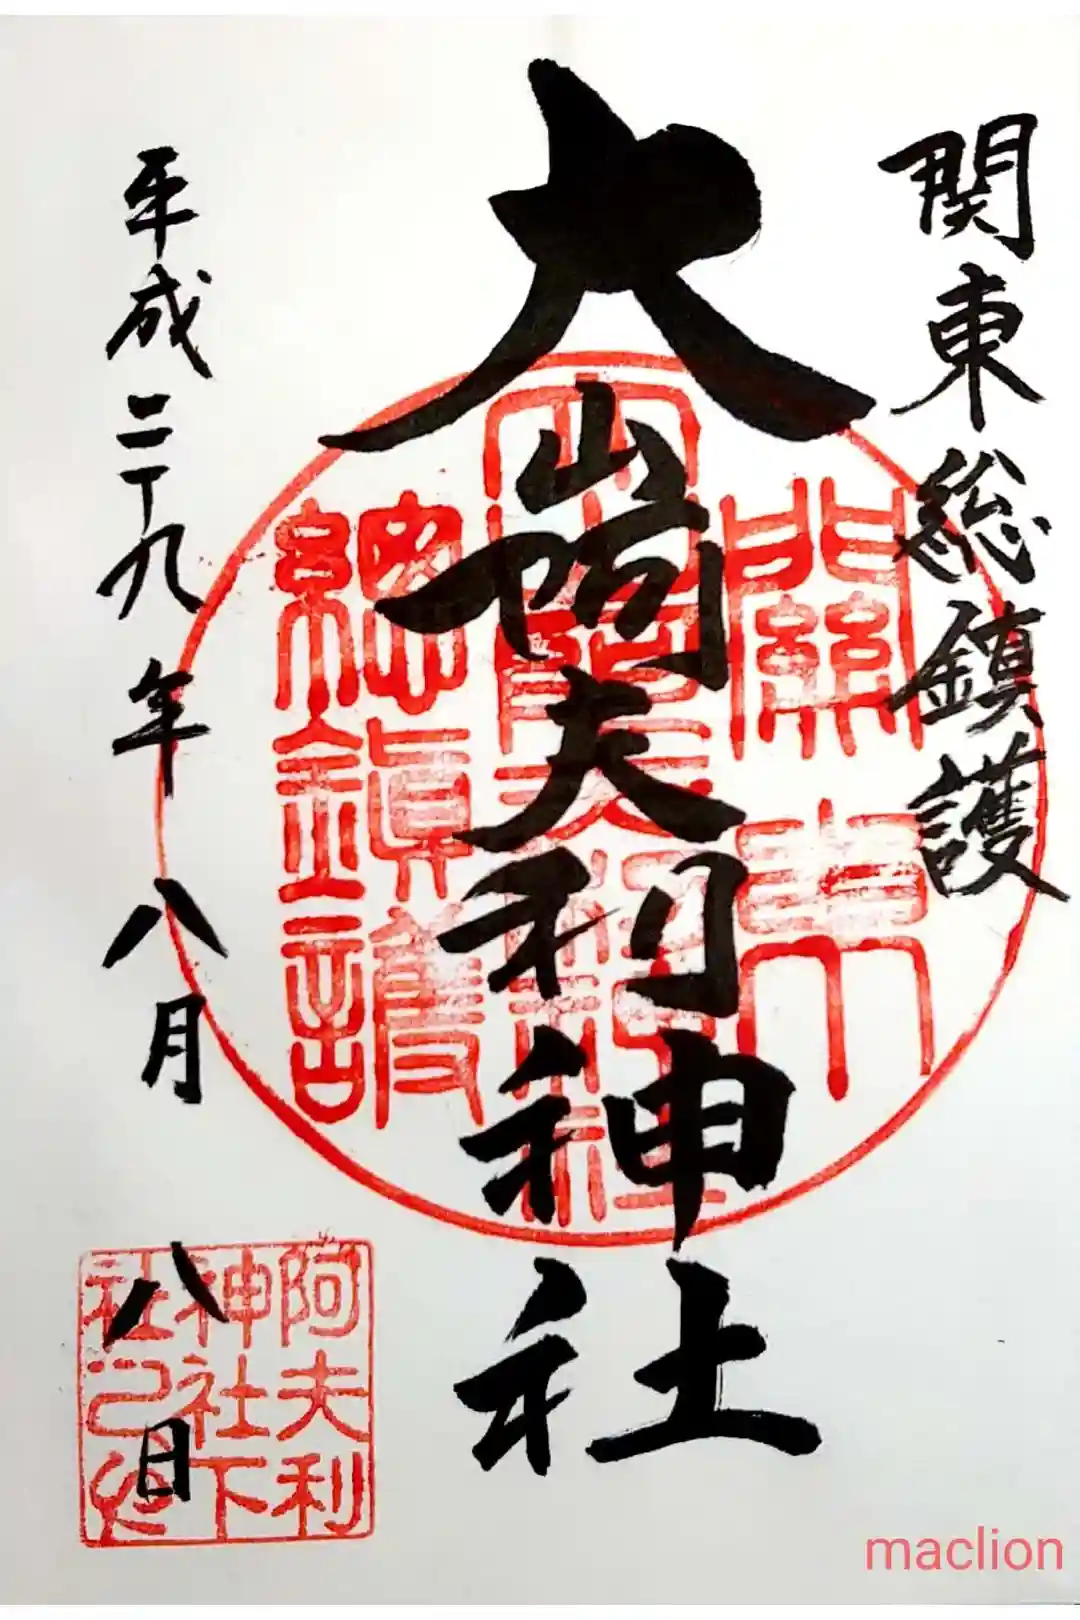 関東総鎮護
大山阿夫利神社
平成二十九年 八月 八日
關東
總鎮護
阿夫利
神社下
社之
maclion